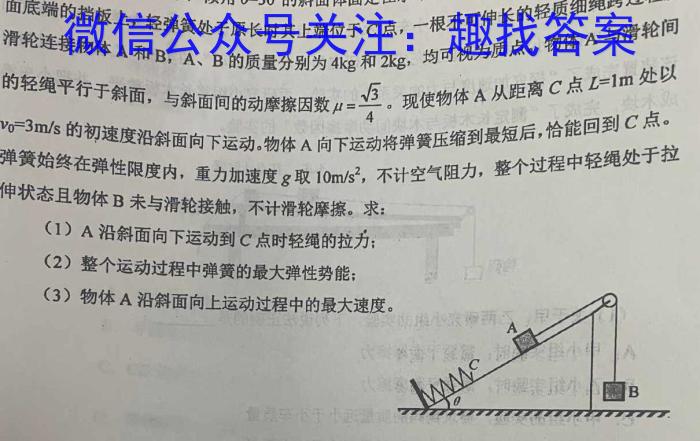 角θ=30°的斜面体固定在水
面底端的挡板上，轻弹簧处于原长时其上端位于C点，一根不可伸长的轻质细绳跨过
微信公众号关注：趣找答案
滑轮连接物体A和B，A、B的质量分别为4kg和2kg，均可视为质点，物体A与滑轮间
的轻绳平行于斜面，与斜面间的动摩擦因数μ=√3/4。现使物体A从距离C点L=1m处以
v₀=3m/s的初速度沿斜面向下运动。物体A向下运动将弹簧压缩到最短后，恰能回到C点。
弹簧始终在弹性限度内，重力加速度g取10m/s²，不计空气阻力，整个过程中轻绳处于拉
伸状态且物体B未与滑轮接触，不计滑轮摩擦。求：
（1）A沿斜面向下运动到C点时轻绳的拉力；
（2）整个运动过程中弹簧的最大弹性势能；
（3）物体A沿斜面向上运动过程中的最大速度。
A
C
θ
B